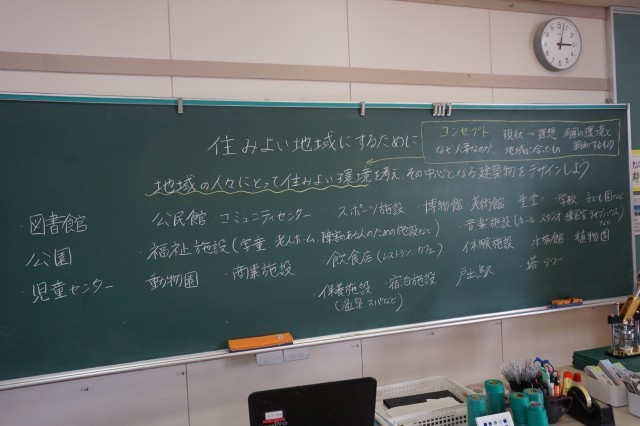 住みよい地域にするために
コンセプト 現状→理想 周囲の環境と
なぜ必要なのか 地域に合たもの 調和するもの
地域の人々にとって住みよい環境を考え、その中心となる建築物をデザインしよう
・図書館 公民館 コミュニティセンター スポーツ施設 博物館 美術館 ・学校
公園 ・福祉施設(学童 老人ホーム、障害のある人のための施設など) ・音楽施設(ホール スタジオ ライブハウス)
・児童センター 動物園 ・商業施設 ・飲食店(レストラン カフェ) 体験施設 水族館 植物園
保養施設 宿泊施設 ・塔 タワー
(温泉 スパなど)